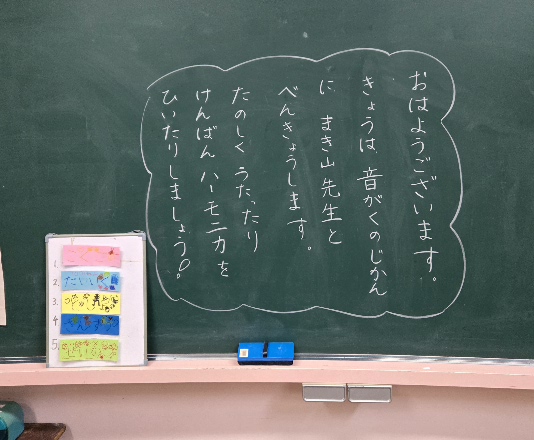 おはようございます。
きょうは 音がくのじかん
に まき山先生と
べんきょうします。
たのしく うたったり
けんばんハーモニカを
ひいたりしましょう。
1.
2.
3.
4
5.